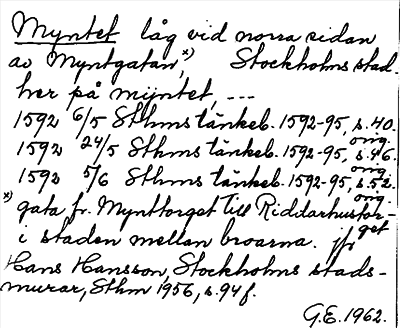 Myntet låg vid norra sidan
av Myntgatan,x) Stockholms stad.
her på myntet, ---
1592 6/5 Sthms tänkeb. 1592-95, s. 40. orig.
1592 24/5 Sthms tänkeb. 1592-95, s. 46. orig.
1592 5/6 Sthms tänkeb. 1592-95, s. 52. orig.
x) gata fr. Mynttorget till Riddarhustor-
get
i staden mellan broarna. jfr
Hans Hansson, Stockholms stads-
murar, Sthm 1956, s. 94 f.
G.E. 1962.